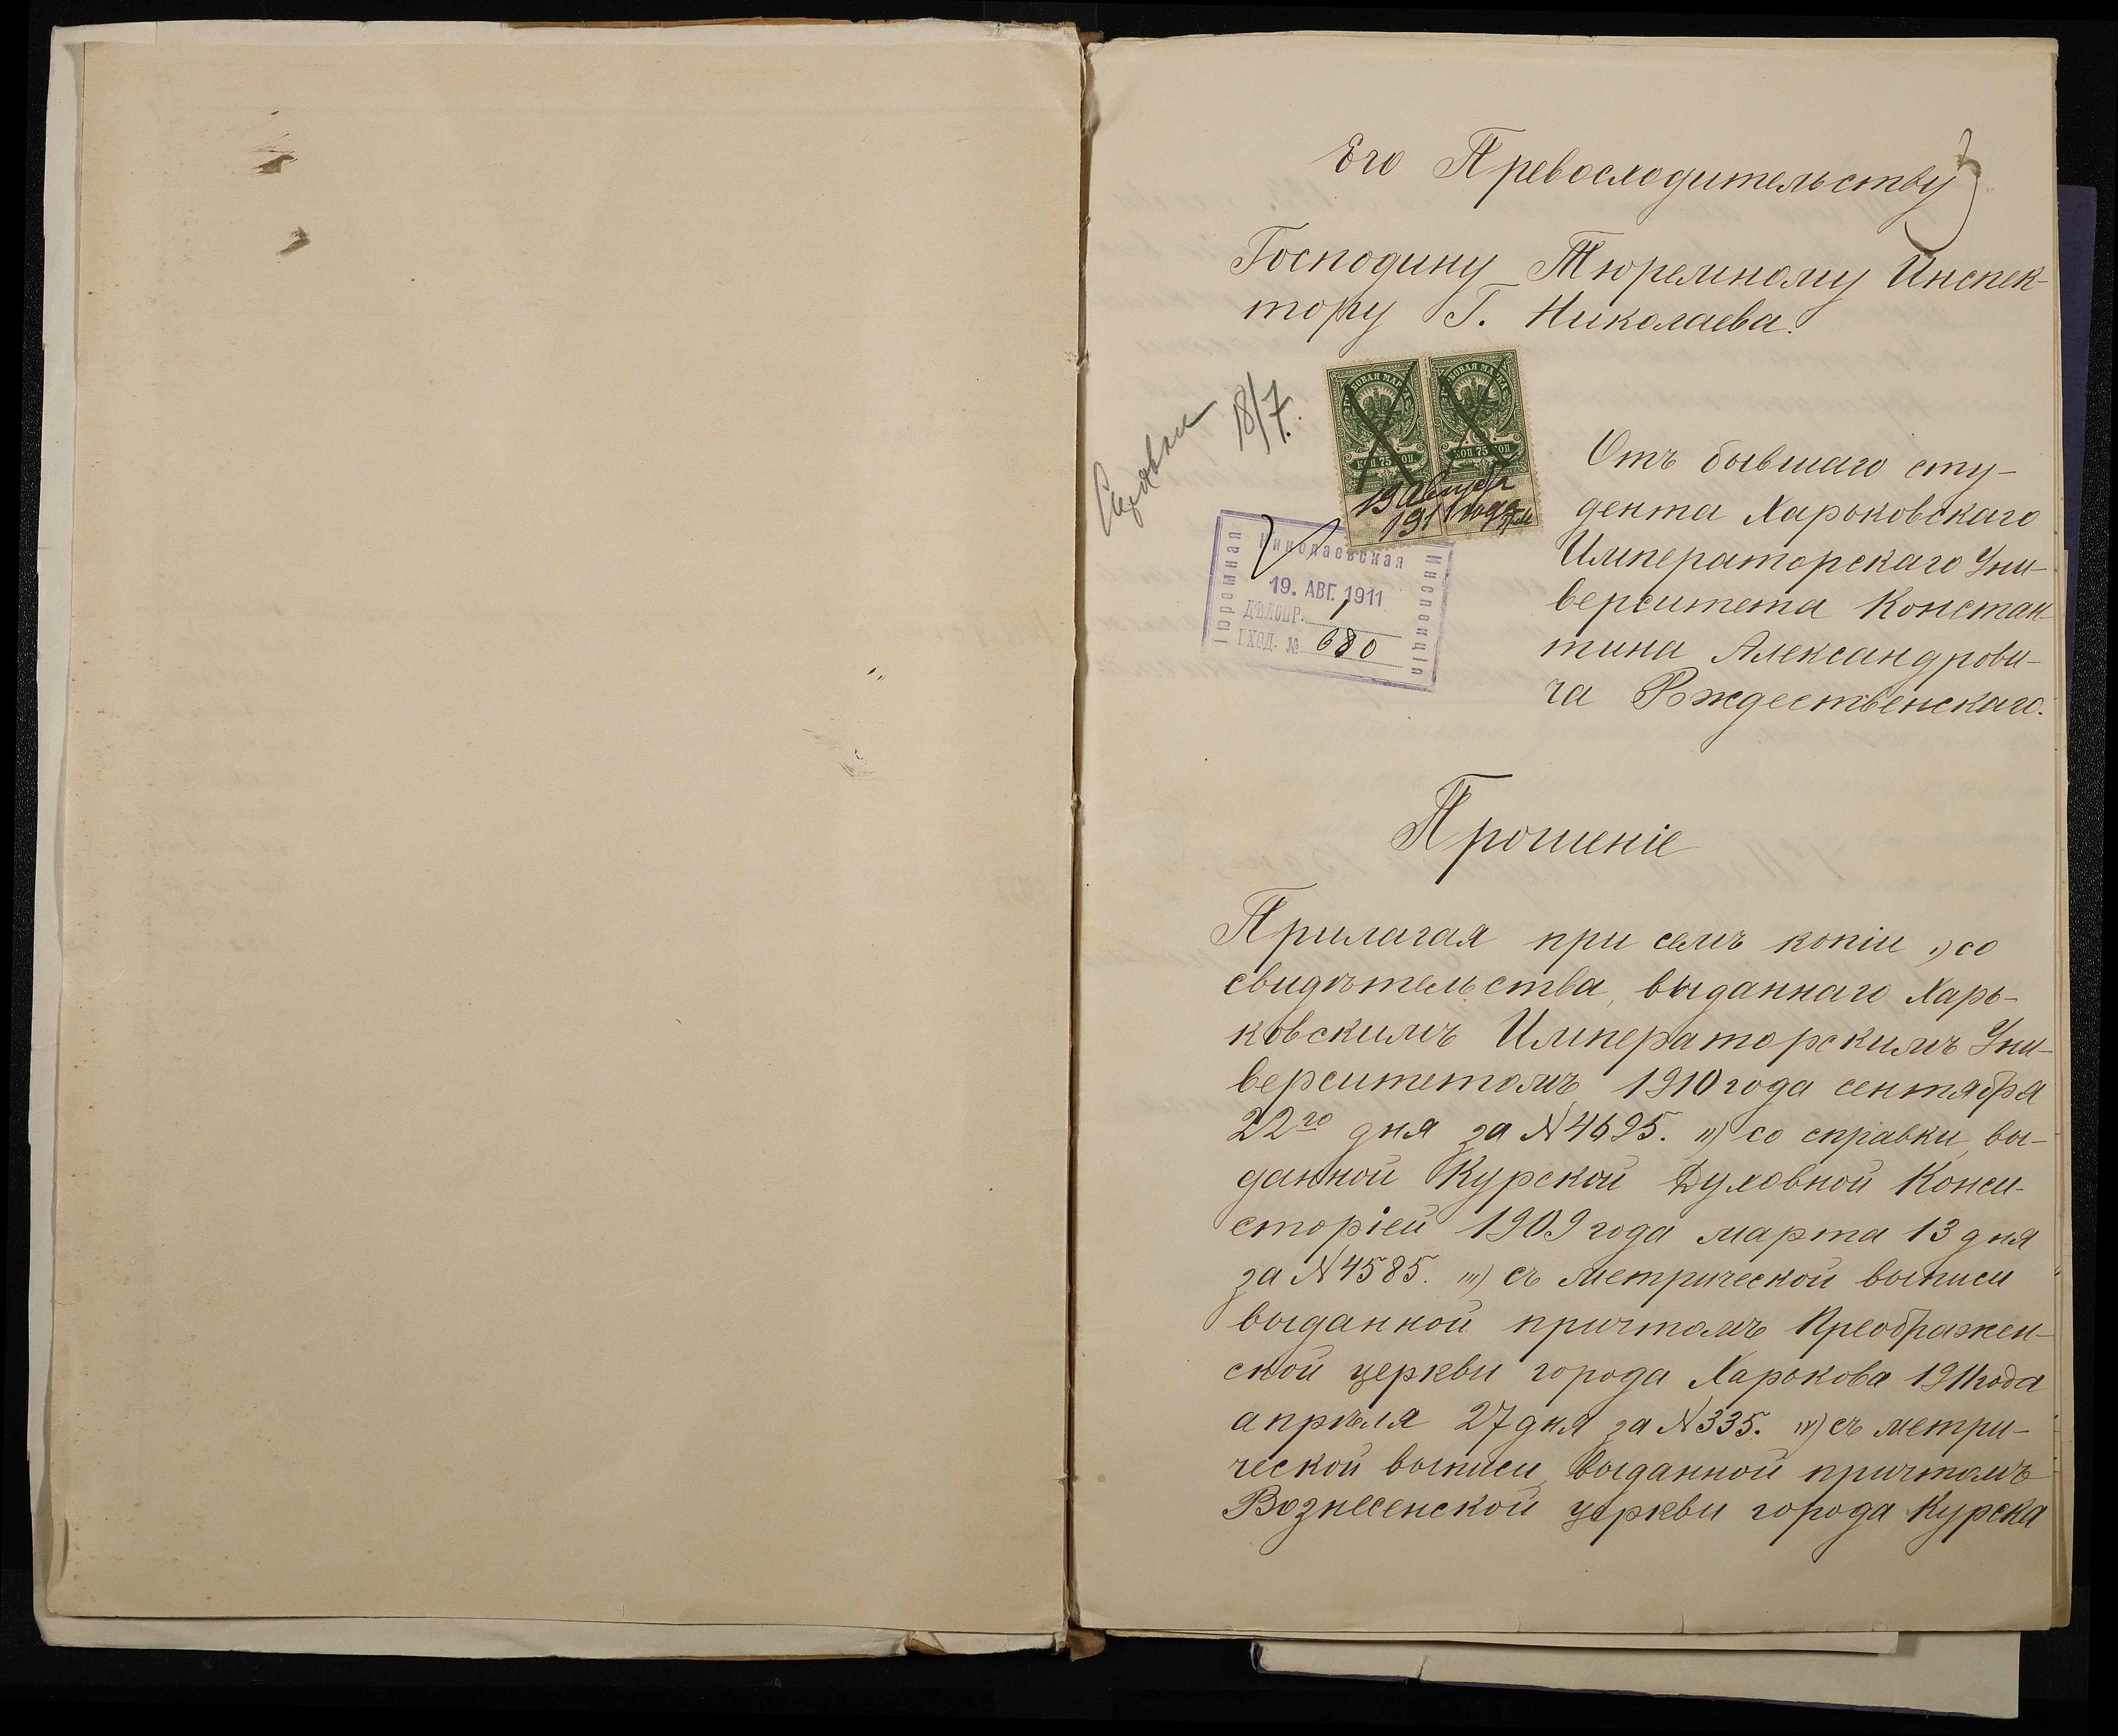 Его Превосходительству
Господину Тюремному Инспек-
тору Г. Николаева.
18/7.
ГЕРБОВАЯ МАРКА
ГЕРБОВАЯ МАРКА
КОП. 75 КОП.
КОП. 75 КОП.
19 августа
1911 года
Николаевская
Тюремная
Инспекція
19. АВГ. 1911
ДѢЛОПР. 1
ВХОД. № 680
Отъ бывшаго сту-
дента Харьковскаго
Императорскаго Уни-
верситета Констан-
тина Александрови-
ча Рождественскаго.
Прошеніе
Прилагая при семъ копіи ı) со
свидѣтельства, выданнаго Харь-
ковскимъ Императорскимъ Уни-
верситетомъ 1910 года сентября
22го дня за № 4695. ıı) со справки, вы-
данной Курской Духовной Конси-
сторіей 1909 года марта 13 дня
за № 4585. ııı) съ метрической выписи
выданной причтомъ Преображен-
ской церкви города Харькова 1911 года
апрѣля 27 дня за № 335. ıv) съ метри-
ческой выписи, выданной причтомъ
Вознесенской церкви города Курска